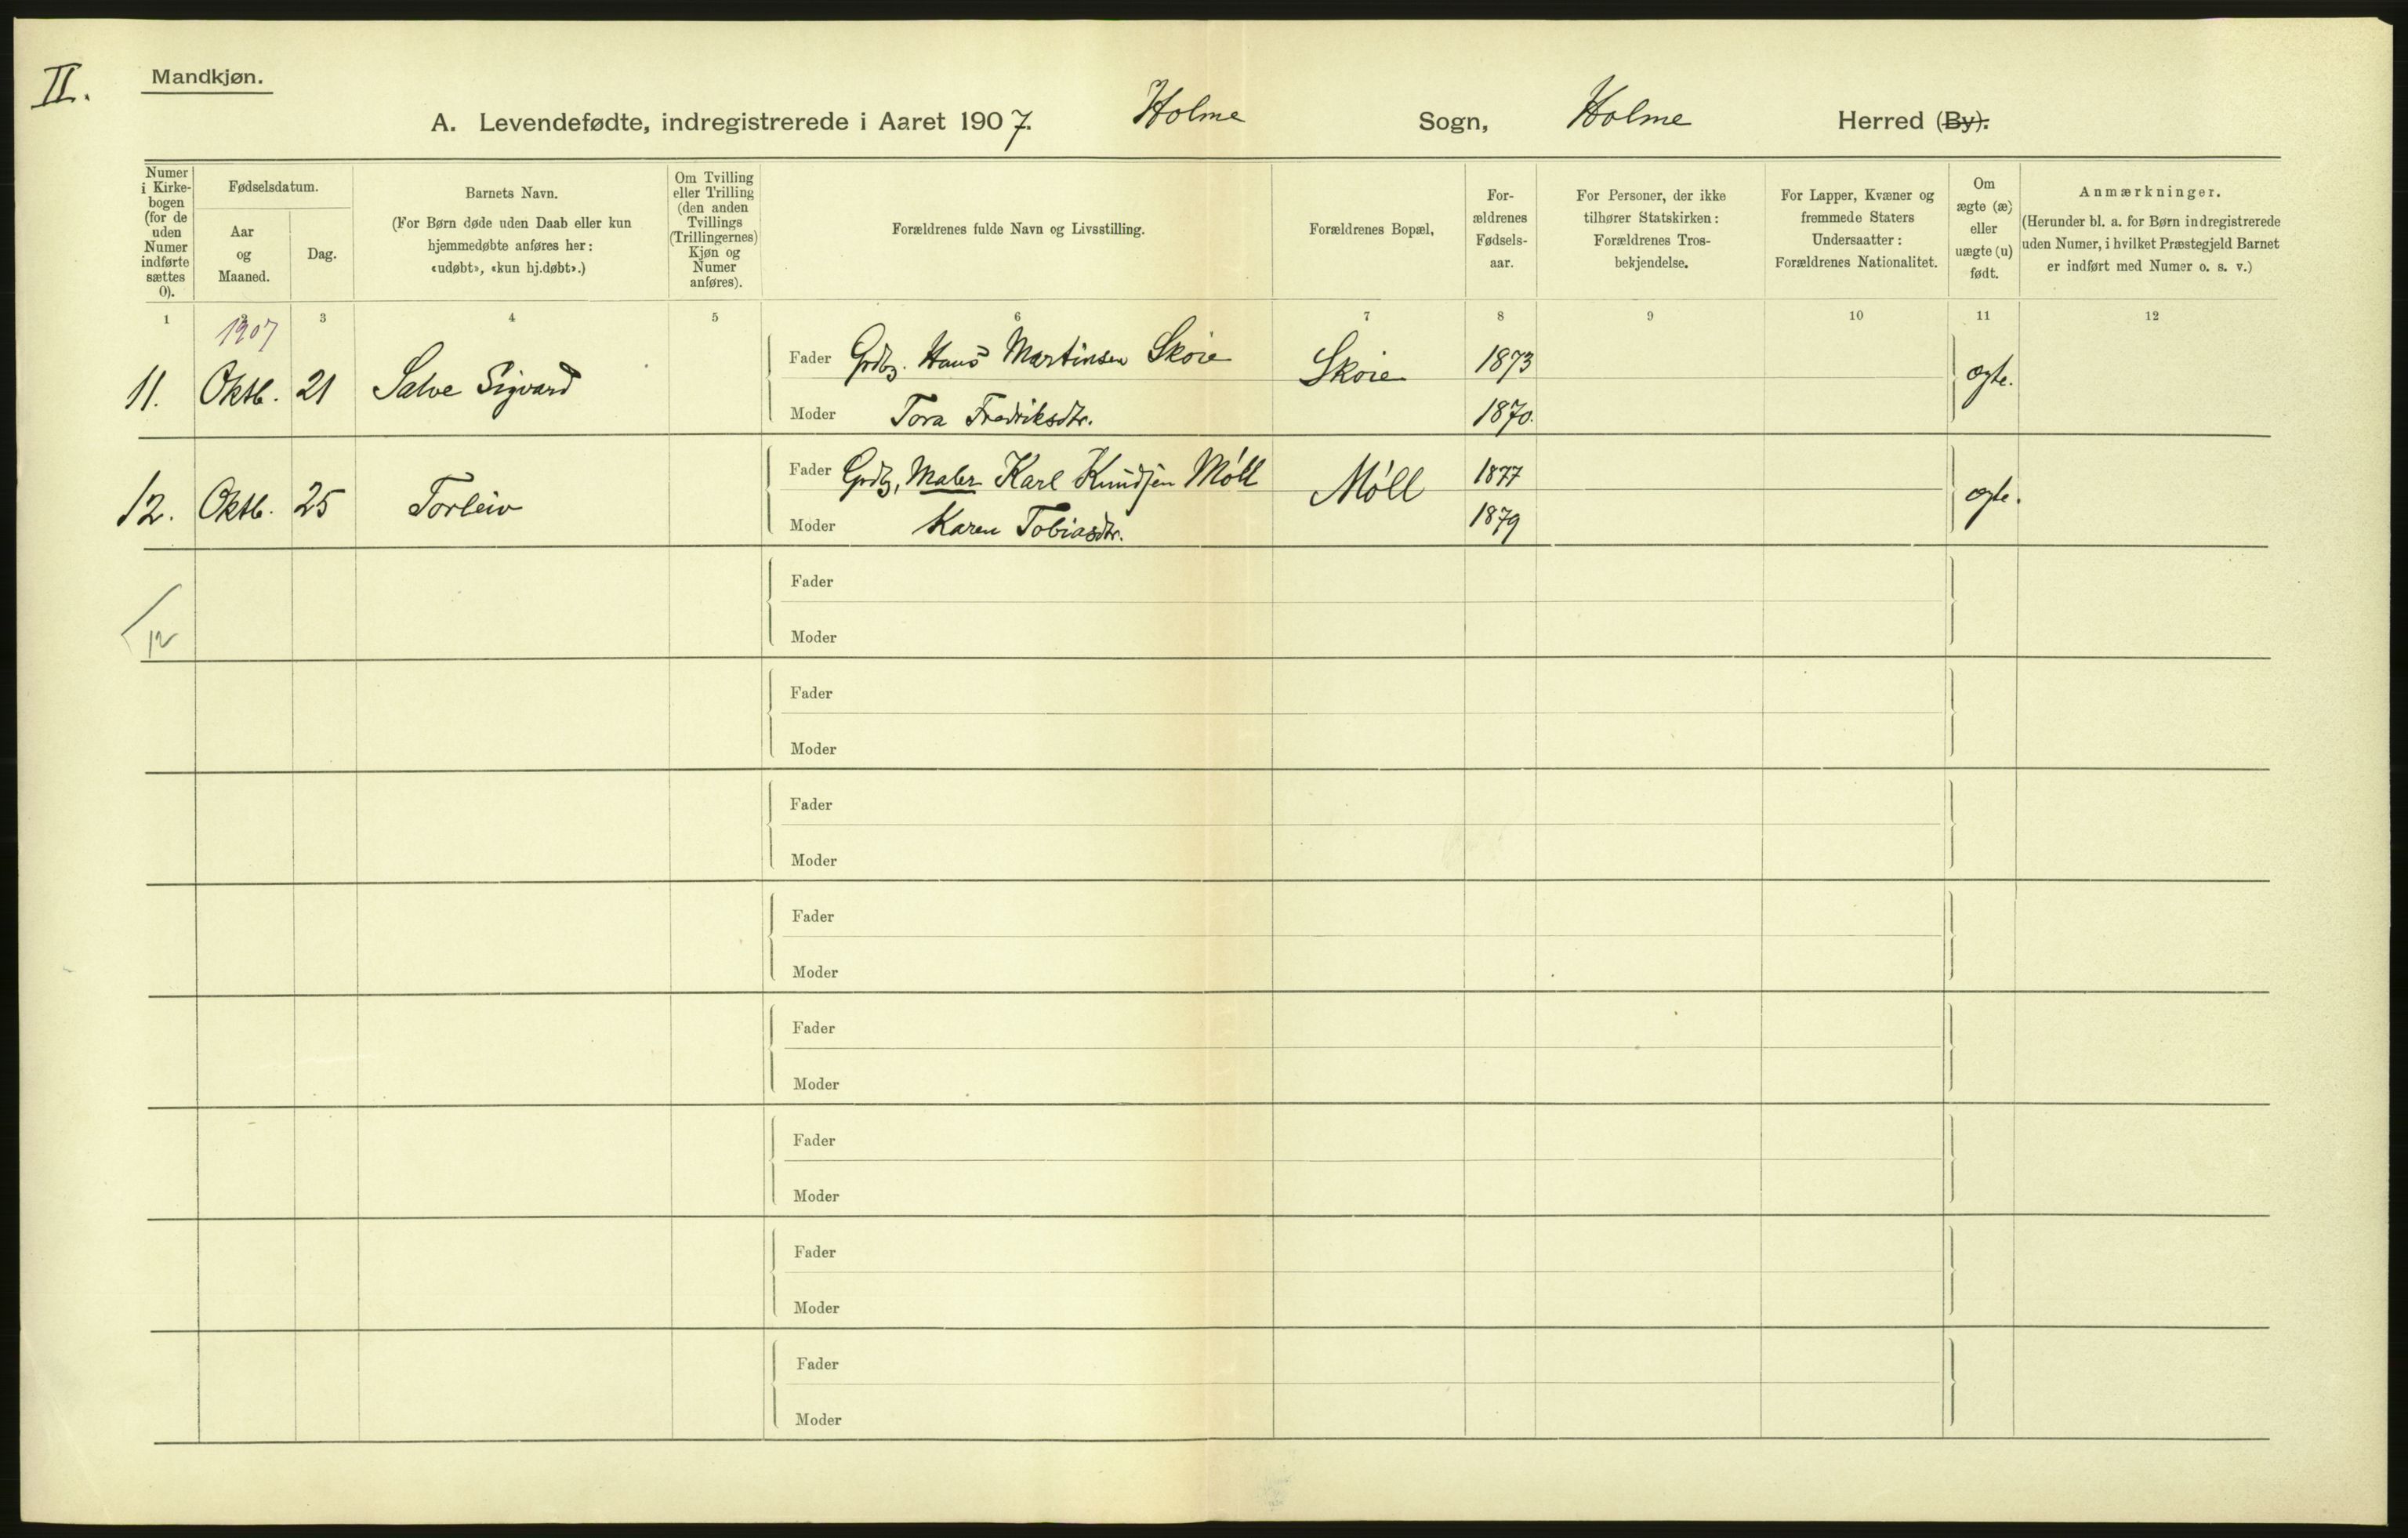 II.
Mandkjøn.
A. Levendefødte, indregistrerede i Aaret 1907. Holme Sogn, Holme Herred (By).
Numer i Kirkebogen (for de uden Numer indførte sættes 0).
Fødselsdatum.
Aar og Maaned.
Dag.
Barnets Navn.
(For Børn døde uden Daab eller kun
hjemmedøbte anføres her:
«udøbt», «kun hj.døbt».)
Om Tvilling
eller Trilling
(den anden
Tvillings
(Trillingernes)
Kjøn og
Numer
anføres).
Forældrenes fulde Navn og Livsstilling.
Forældrenes Bopæl,
For-
ældrenes
Fødsels-
aar.
For Personer, der ikke
tilhører Statskirken:
Forældrenes Tros-
bekjendelse.
For Lapper, Kvæner og
fremmede Staters
Undersaatter:
Forældrenes Nationalitet.
Om
ægte (æ)
eller
uægte (u)
født.
Anmærkninger.
(Herunder bl. a. for Børn indregistrerede
uden Numer, i hvilket Præstegjeld Barnet
er indført med Numer o. s. v.)
1 2 3 4 5 6 7 8 9 10 11 12
1907
11. Oktb. 21 Salve Sigvard Fader Grdbg. Hans Martinsen Skoie Skoie 1873 ægte.
Moder Tora Fredriksdtr. 1870.
12. Oktb. 25 Torleiv Fader Grdbg, Maler Karl Knudsen Møll Møll 1877 ægte.
Moder Karen Tobiasdtr. 1879
Fader
12
Moder
Fader
Moder
Fader
Moder
Fader
Moder
Fader
Moder
Fader
Moder
Fader
Moder
Fader
Moder